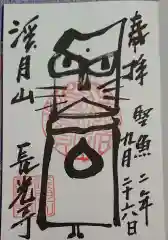 奉拝
二年
九月二十六日
渓月山
長光寺